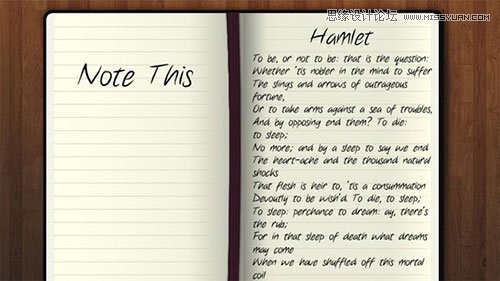 思缘设计论坛 WWW.MISSYUAN.COM
Note This
Hamlet
To be, or not to be: that is the question:
Whether 'tis nobler in the mind to suffer
The slings and arrows of outrageous
fortune,
Or to take arms against a sea of troubles,
And by opposing end them? To die:
to sleep;
No more; and by a sleep to say we end
The heart-ache and the thousand natural
shocks
That flesh is heir to, 'tis a consummation
Devoutly to be wish'd. To die, to sleep;
To sleep: perchance to dream: ay, there's
the rub;
For in that sleep of death what dreams
may come
When we have shuffled off this mortal
coil